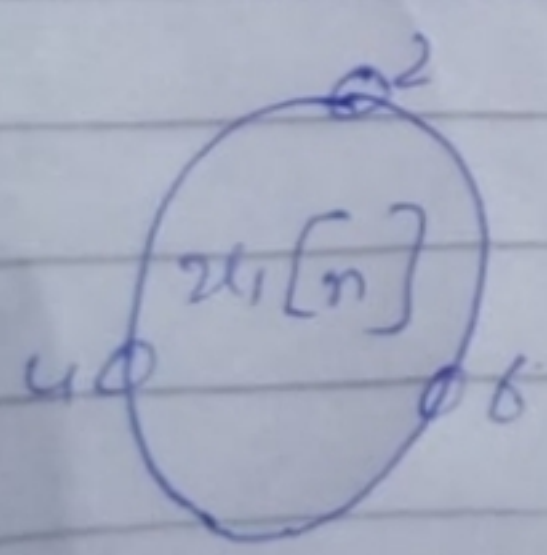 2
x₁[n]
4 6